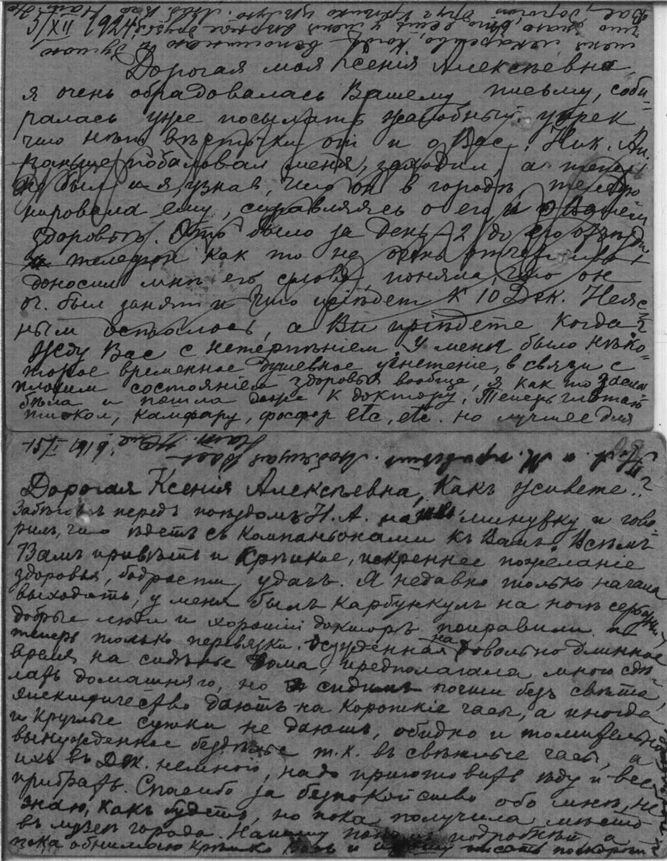 5/XII 1924
Дорогая моя Ксенія Алексѣевна
я очень обрадовалась Вашему письму, соби-
ралась уже посылать жалобный упрек
что нѣтъ вѣсточки от и о Вас. Ник. Ан.
раньше побаловал меня, заходил, а теперь
не был и я узнав, что он в городѣ телефо
нировала ему, справляясь о его и о Вашем
здоровьѣ. Это было за день-2 до его отъѣзда
телефон как то не очень отчетливо
доносил мнѣ его слова, поняла, что он
оч. был занят и что пріѣдет к 10 Дек. Неяс
ным осталось, а Вы пріѣдете когда?
Жду Вас с нетерпѣніем. У меня было нѣко-
торое временное душевное угнетеніе, в связи с
плохим состояніем здоровья вообще, я как то
была и пошла даже к доктору. Теперь глотаю
тиокол, камфару, фосфор etc, etc. но лучшее для
Любящая Васъ
Дорогая Ксенія Алексѣевна, Какъ живете?
Забѣжалъ передъ поѣздомъ Н. А. на минутку и гово
рилъ, что ѣдетъ съ компаньонами къ Вамъ. Шлемъ
Вамъ привѣтъ и крѣпкое, искреннее пожеланіе
здоровья, бодрости, удачъ. Я недавно только начала
выходить, у меня былъ карбункулъ на носѣ серьезный
добрые люди и хорошій докторъ поправили и
теперь только перевязки. Осужденная на довольно длинное
время на сидѣнье дома, предполагала много сдѣ
лать домашняго, но сидимъ почти безъ свѣта,
электричество даютъ на короткіе часы, а иногда
и круглые сутки не даютъ, обидно и томительно
вынужденное бездѣлье т.к. въ свѣтлые часы, а
ихъ въ Дек. немного, надо приготовить ѣду и все
прибрать. Спасибо за безпокойство обо мнѣ, не
знаю, какъ будетъ, но пока получила мѣсто
въ музеѣ города. Напишу подробнѣй а
пока обнимаю крѣпко Васъ и